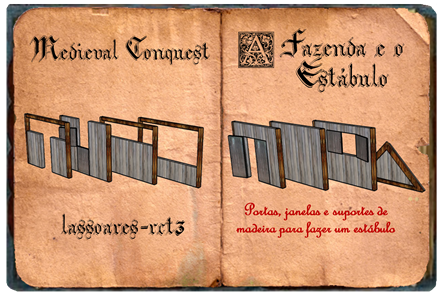 Medieval Conquest
lassoares-rct3
A Fazenda e o
Estábulo
Portas, janelas e suportes de
madeira para fazer um estábulo